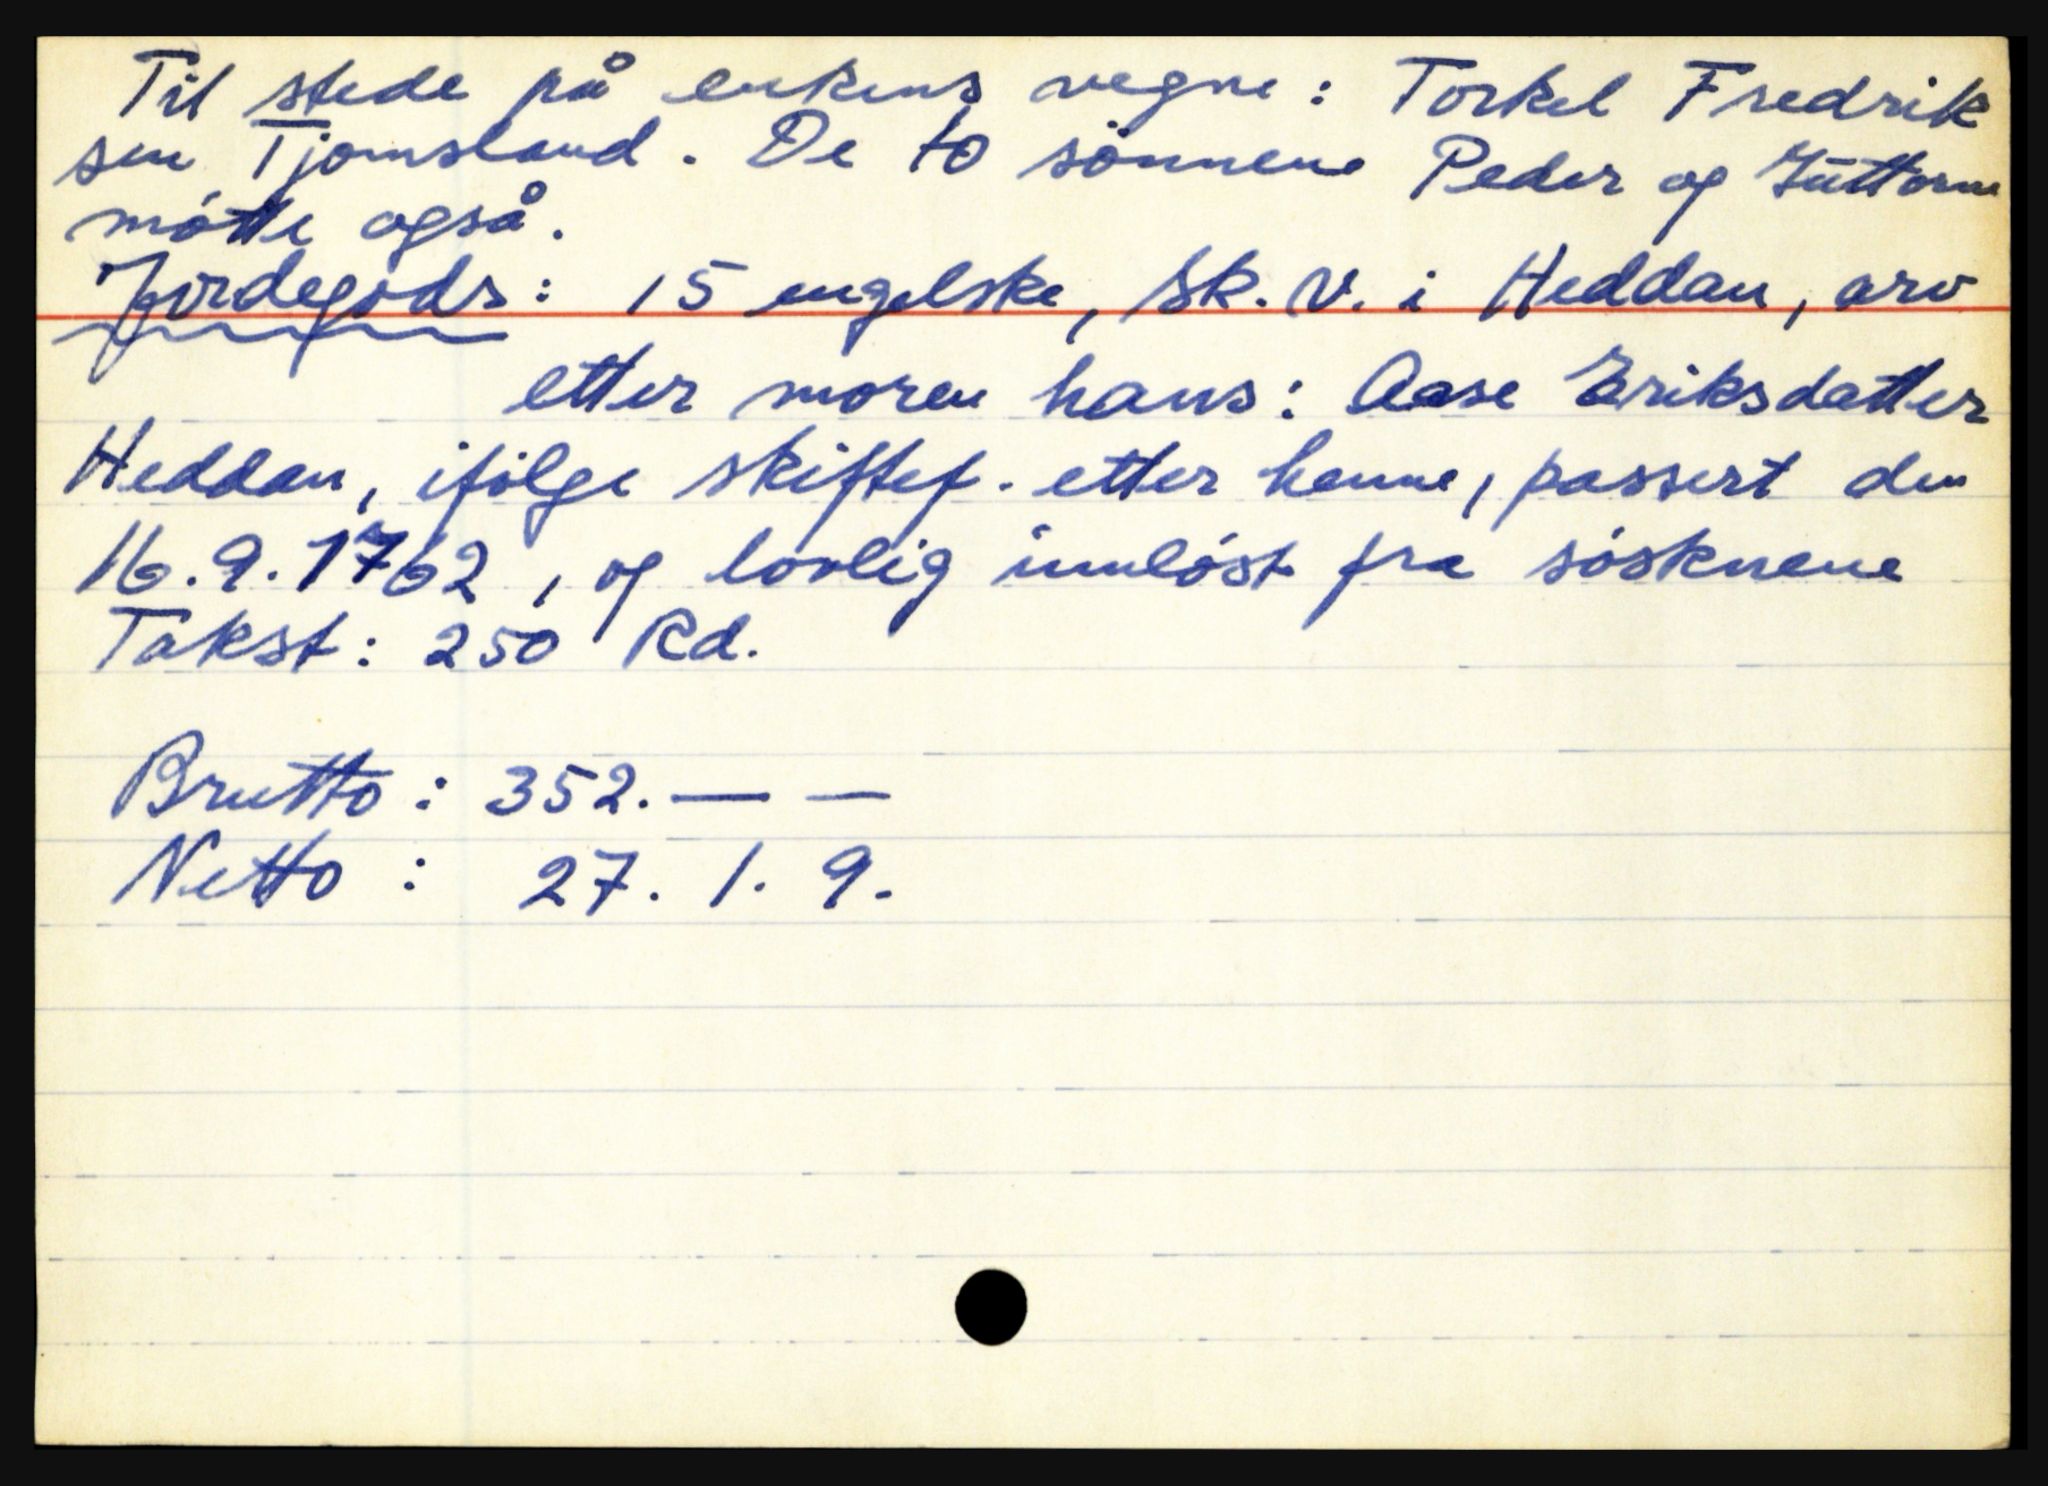 Til stede på enkens vegne: Torkel Fredrik
sen Tjomsland. De to sönnene Peder og Guttorm
møtte også.
Jordegods: 15 engelske, sk. v. i Heddan, arv
etter moren hans: Aase Eriksdatter
Heddan, ifölge skiftef. etter henne, passert den
16.9.1762, og lovlig innlöst fra sösknene
Takst: 250 Rd.
Brutto: 352. — —
Netto: 27. 1. 9.